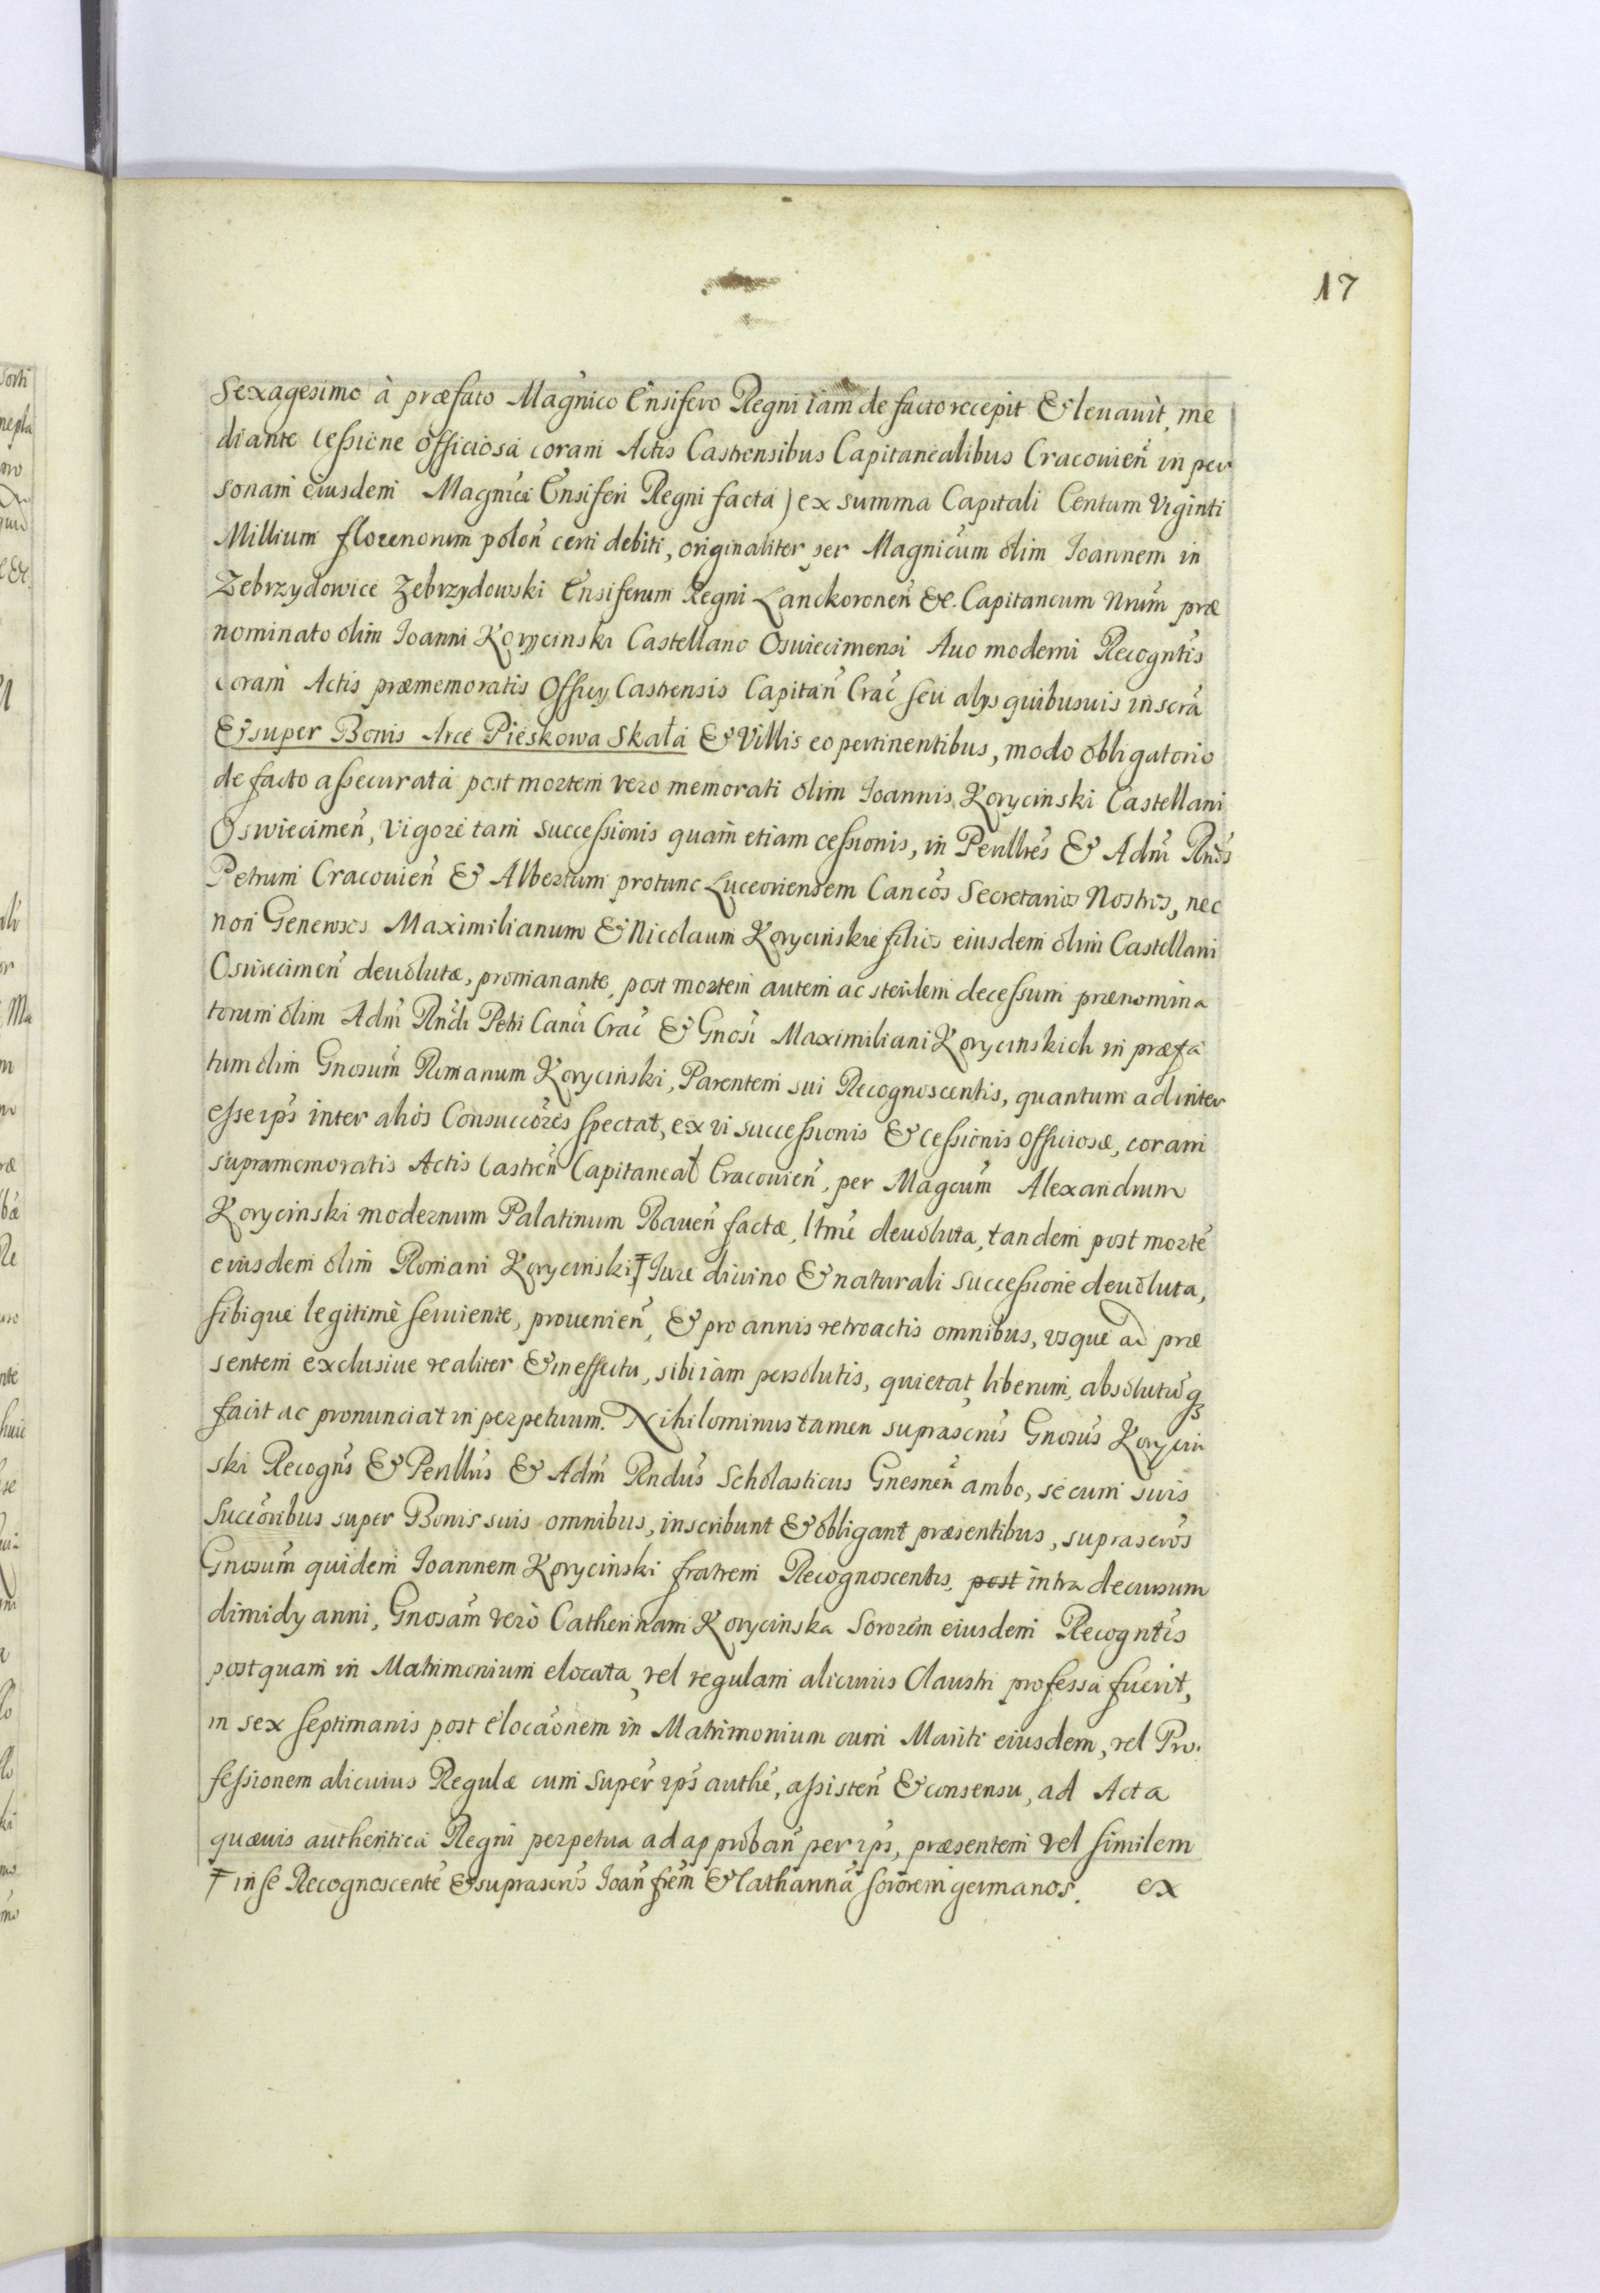 17
Sexagesimo à præfato Magnico Ensifero Regni iam de facto recepit & leuauit, me
diante cessione officiosa coram Actis Castrensibus Capitanealibus Cracouien̄ in per
sonam eiusdem Magnici Ensiferi Regni facta) ex summa Capitali Centum Viginti
Millium florenorum polon̄ certi debiti, originaliter per Magnicum olim Ioannem in
Zebrzydowice Zebrzydowski Ensiferum Regni Lanckoronen̄ &c. Capitaneum Nrum præ
nominato olim Ioanni Korycinski Castellano Osuiecimensi Auo moderni Recogntis
coram Actis præmemoratis Officy Castrensis Capitan̄ Crac̄ seu alys quibusuis inscrā
& super Bonis Arce Pieskowa Skała & Villis eo pertinentibus, modo obligatorio
de facto assecurata post mortem vero memorati olim Ioannis Korycinski Castellani
Oswiecimen̄, vigore tam successionis quam etiam cessionis, in Perillres & Adm̄ Rndos
Petrum Cracouien̄ & Albertum protunc Luceoriensem Cancos Secretarios Nostros, nec
non Generosos Maximilianum & Nicolaum Korycinskie filios eiusdem olim Castellani
Osuiecimen̄ deuolutæ, promanante, post mortem autem ac sterilem decessum prænomina
torum olim Adm̄ Rndi Petri Canci Crac̄ & Gnosi Maximiliani Korycinskich in præfa
tum olim Gnosum Romanum Korycinski, Parentem sui Recognoscentis, quantum ad inter
esse ips̄ inter alios Consuccores spectat, ex vi successionis & cessionis officiosæ, coram
supramemoratis Actis Castren̄ Capitaneal̄ Cracouien̄, per Magcum Alexandrum
Korycinski modernum Palatinum Rauen̄ factæ, ltme deuoluta, tandem post mortē
eiusdem olim Romani Korycinski ꝉ Iure diuino & naturali successione deuoluta,
sibique legitimè seruiente, prouenien̄, & pro annis retroactis omnibus, vsque ad præ
sentem exclusiue realiter & in effectu, sibi iam persolutis, quietat, liberum, absolutūq3
facit ac pronunciat in perpetuum. Nihilominus tamen suprascrus Gnosus Korycin
ski Recogns & Perillus & Adm̄ Rndus Scholasticus Gnesnen̄ ambo, secum suis
Succoribus super Bonis suis omnibus, inscribunt & obligant præsentibus, suprascros
Gnosum quidem Ioannem Korycinski fratrem Recognoscentis, post intra decursum
dimidy anni, Gnosam verò Catherinam Korycinska Sororem eiusdem Recogntis
postquam in Matrimonium elocata, vel regulam alicuius Claustri professa fuerit,
in sex septimanis post elocaonem in Matrimonium cum Mariti eiusdem, vel Pro-
fessionem alicuius Regulæ cum Super̄ ips̄ authe, assisten̄ & consensu, ad Acta
quæuis authentica Regni perpetua ad approban̄ per ips̄, præsentem vel similem
ꝉ in se Recognoscentē & suprascros Ioan̄ frem & Cathannā sororem germanos. ex